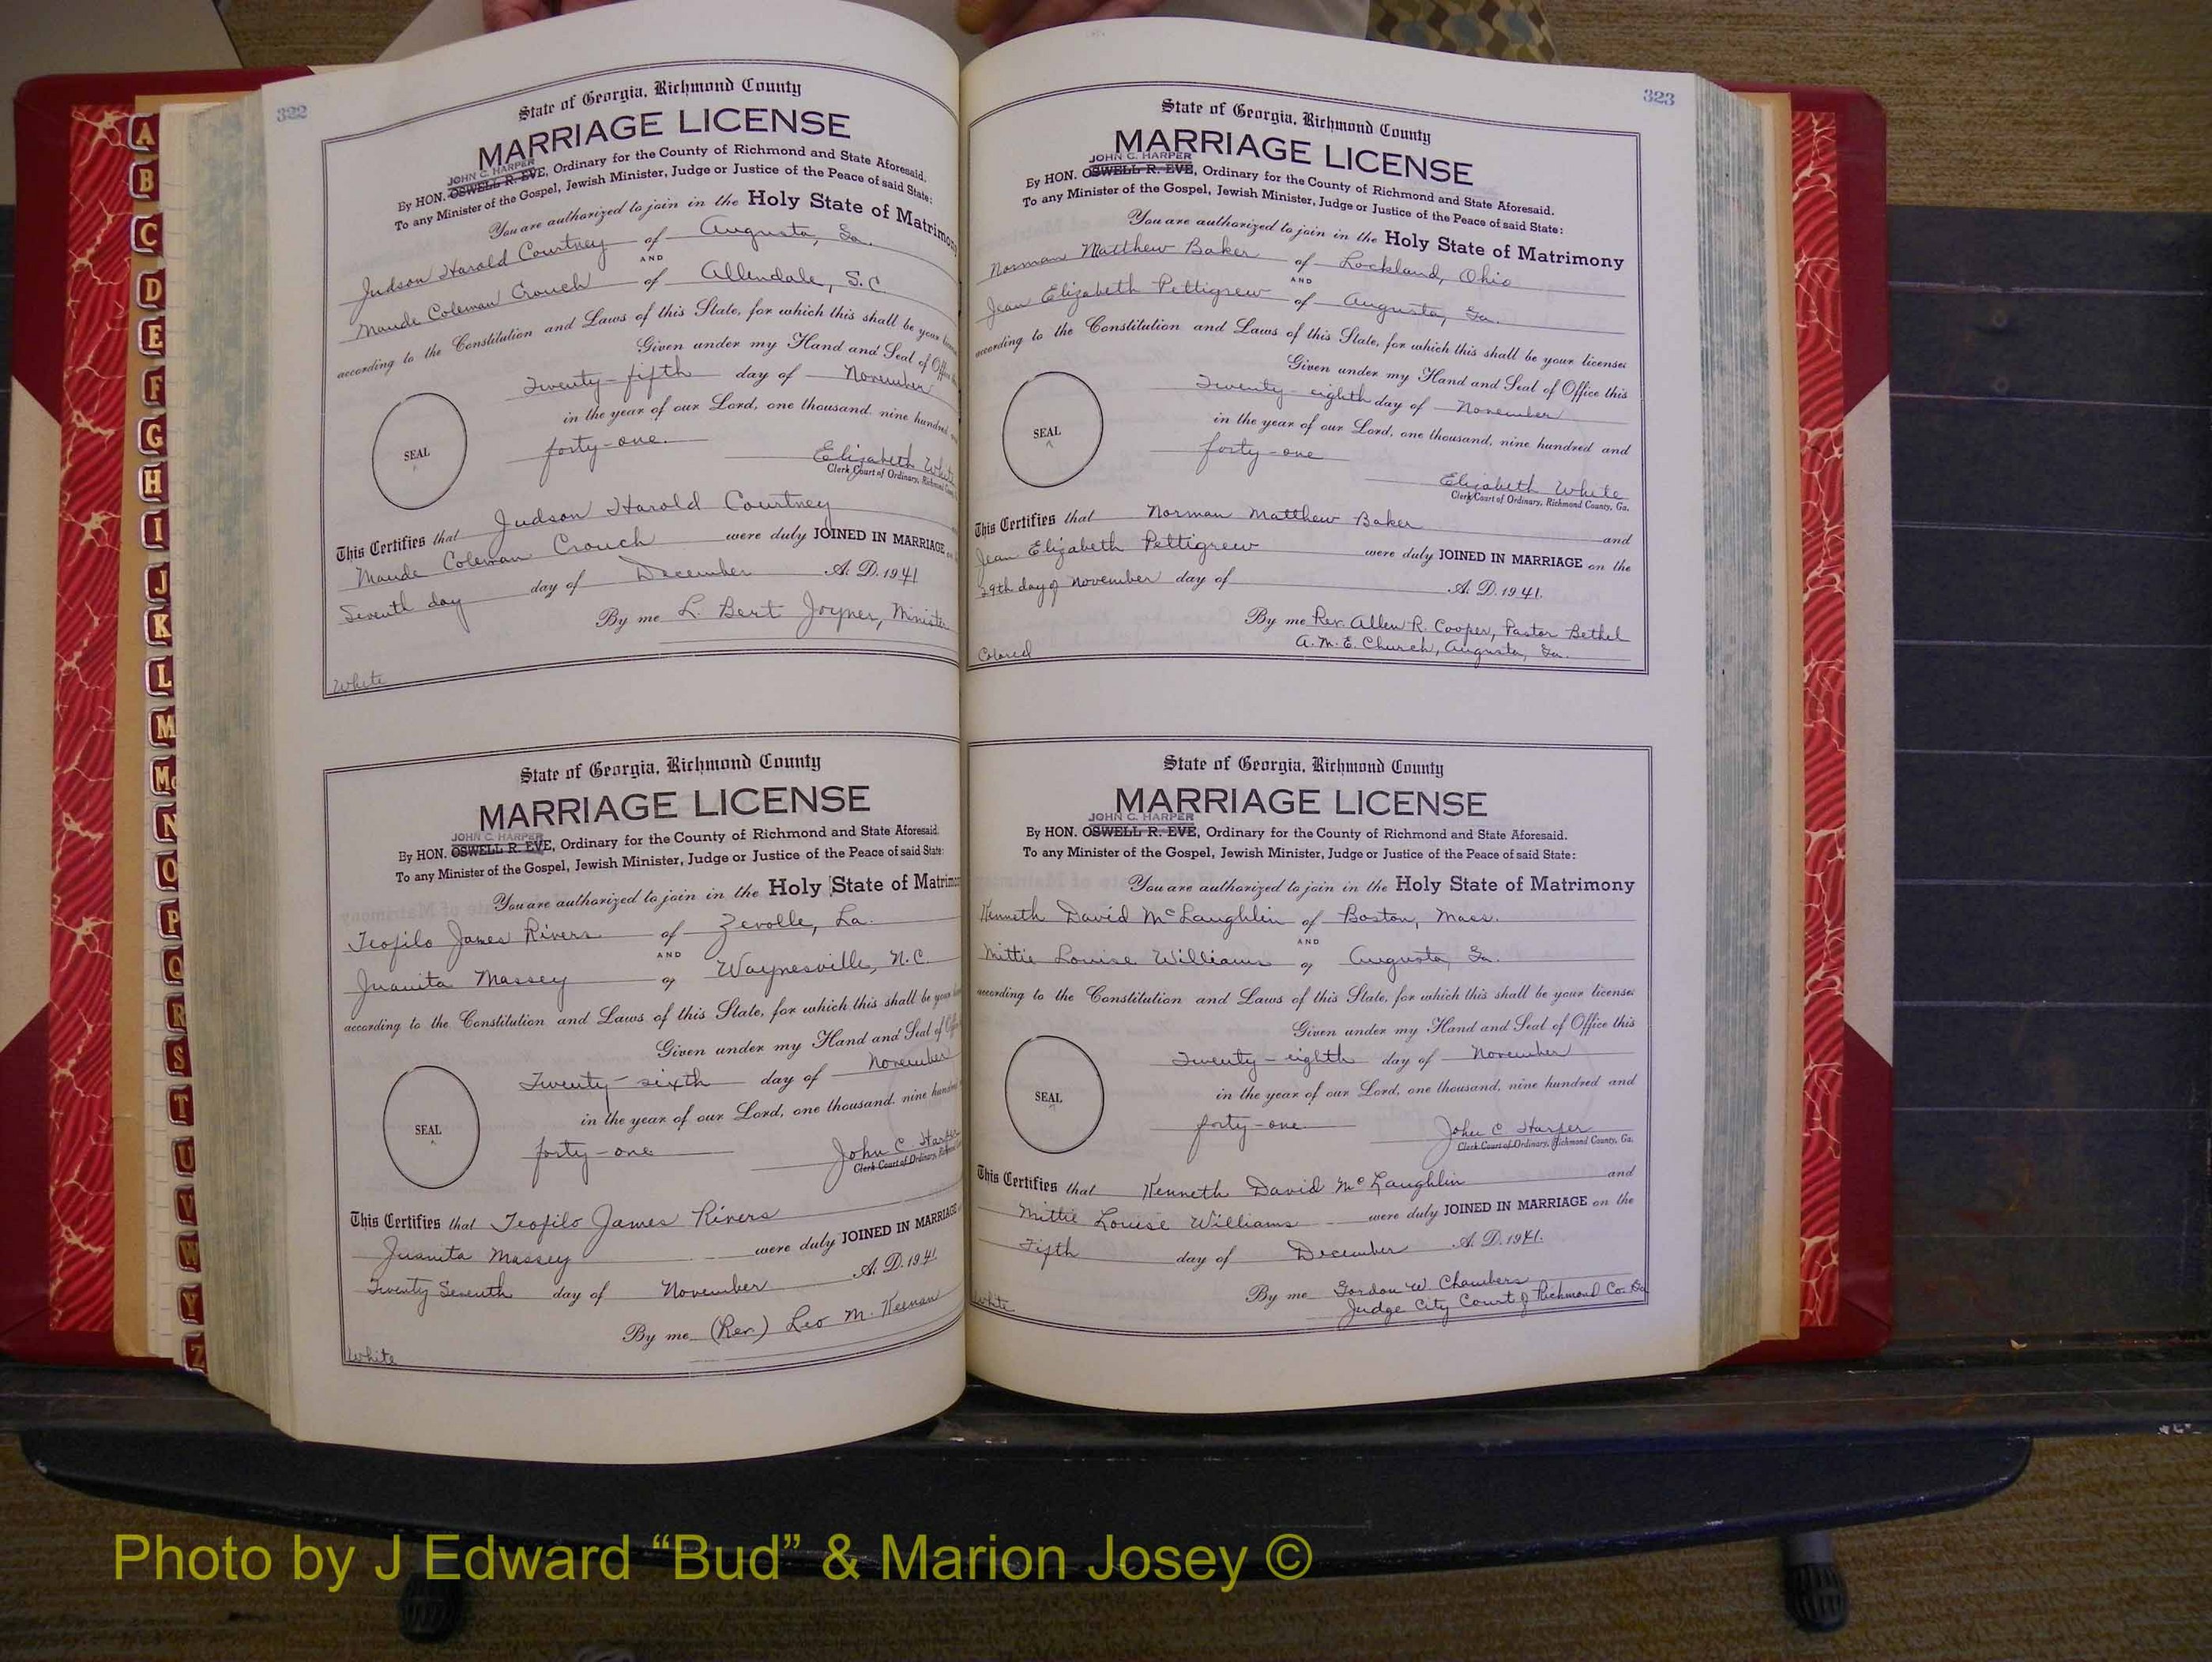 322
State of Georgia, Richmond County
MARRIAGE LICENSE
JOHN C. HARPER
By HON. OSWELL R. EVE, Ordinary for the County of Richmond and State Aforesaid.
To any Minister of the Gospel, Jewish Minister, Judge or Justice of the Peace of said State:
You are authorized to join in the Holy State of Matrimony
Judson Harold Courtney of Augusta, Ga.
AND
Maude Coleman Crouch of Allendale, S.C.
according to the Constitution and Laws of this State, for which this shall be your
Given under my Hand and Seal of Office
Twenty-fifth day of November
in the year of our Lord, one thousand, nine hundred
forty-one.
SEAL
Elizabeth White
Clerk Court of Ordinary, Richmond
This Certifies that Judson Harold Courtney
Maude Coleman Crouch were duly JOINED IN MARRIAGE
Seventh day day of December A. D. 1941
By me L. Bert Joyner, Minister
White
State of Georgia, Richmond County
MARRIAGE LICENSE
JOHN C. HARPER
By HON. OSWELL R. EVE, Ordinary for the County of Richmond and State Aforesaid.
To any Minister of the Gospel, Jewish Minister, Judge or Justice of the Peace of said State:
You are authorized to join in the Holy State of Matrimony
Teofilo James Rivers of Zevolle, La.
AND
Juanita Massey of Waynesville, N.C.
according to the Constitution and Laws of this State, for which this shall be your
Given under my Hand and Seal of
Twenty-sixth day of November
in the year of our Lord, one thousand, nine hundred
forty-one
SEAL
John C. Harper
Clerk Court of Ordinary,
This Certifies that Teofilo James Rivers
Juanita Massey were duly JOINED IN MARRIAGE
Twenty Seventh day of November A. D. 1941
By me (Rev.) Leo M. Keenan
White
323
State of Georgia, Richmond County
MARRIAGE LICENSE
JOHN C. HARPER
By HON. OSWELL R. EVE, Ordinary for the County of Richmond and State Aforesaid.
To any Minister of the Gospel, Jewish Minister, Judge or Justice of the Peace of said State:
You are authorized to join in the Holy State of Matrimony
Norman Matthew Baker of Lockland, Ohio
AND
Jean Elizabeth Pettigrew of Augusta, Ga.
according to the Constitution and Laws of this State, for which this shall be your license:
Given under my Hand and Seal of Office this
Twenty-eighth day of November
in the year of our Lord, one thousand, nine hundred and
forty-one
SEAL
Elizabeth White
Clerk Court of Ordinary, Richmond County, Ga.
This Certifies that Norman Matthew Baker and
Jean Elizabeth Pettigrew were duly JOINED IN MARRIAGE on the
29th day of November day of A. D. 1941.
By me Rev. Allen R. Cooper, Pastor Bethel
A.M.E. Church, Augusta, Ga.
Colored
State of Georgia, Richmond County
MARRIAGE LICENSE
JOHN C. HARPER
By HON. OSWELL R. EVE, Ordinary for the County of Richmond and State Aforesaid.
To any Minister of the Gospel, Jewish Minister, Judge or Justice of the Peace of said State:
You are authorized to join in the Holy State of Matrimony
Kenneth David McLaughlin of Boston, Mass.
AND
Mittie Louise Williams of Augusta, Ga.
according to the Constitution and Laws of this State, for which this shall be your license:
Given under my Hand and Seal of Office this
Twenty-eighth day of November
in the year of our Lord, one thousand, nine hundred and
forty-one
SEAL
John C. Harper
Clerk Court of Ordinary, Richmond County, Ga.
This Certifies that Kenneth David McLaughlin and
Mittie Louise Williams were duly JOINED IN MARRIAGE on the
Fifth day of December A. D. 1941.
By me Gordon W. Chambers
Judge City Court of Richmond Co. Ga
White
A
B
C
D
E
F
G
H
I
J
K
L
M
Mc
N
O
P
Q
R
S
T
U
V
W
Y
Z
Photo by J Edward “Bud” & Marion Josey ©